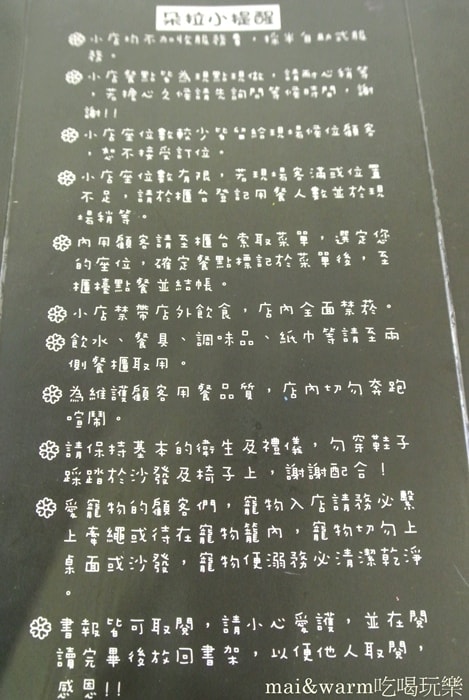 朵拉小提醒
小店均不加收服務費，採半自助式服
務。
小店餐點皆為現點現做，請耐心稍等
，若擔心久候請先詢問等候時間，謝
謝!!
小店座位數較少皆留給現場候位顧客
，恕不接受訂位。
小店座位數有限，若現場客滿或位置
不足，請於櫃台登記用餐人數並於現
場稍等。
內用顧客請至櫃台索取菜單，選定您
的座位，確定餐點標記於菜單後，至
櫃檯點餐並結帳。
小店禁帶店外飲食，店內全面禁菸。
飲水、餐具、調味品、紙巾等請至兩
側餐櫃取用。
為維護顧客用餐品質，店內切勿奔跑
喧鬧。
請保持基本的衛生及禮儀，勿穿鞋子
踩踏於沙發及椅子上，謝謝配合！
愛寵物的顧客們，寵物入店請務必繫
上牽繩或待在寵物籠內，寵物切勿上
桌面或沙發，寵物便溺務必清潔乾淨
。
書報皆可取閱，請小心愛護，並在閱
讀完畢後放回書架，以便他人取閱，
感恩!!
mai&warm吃喝玩樂